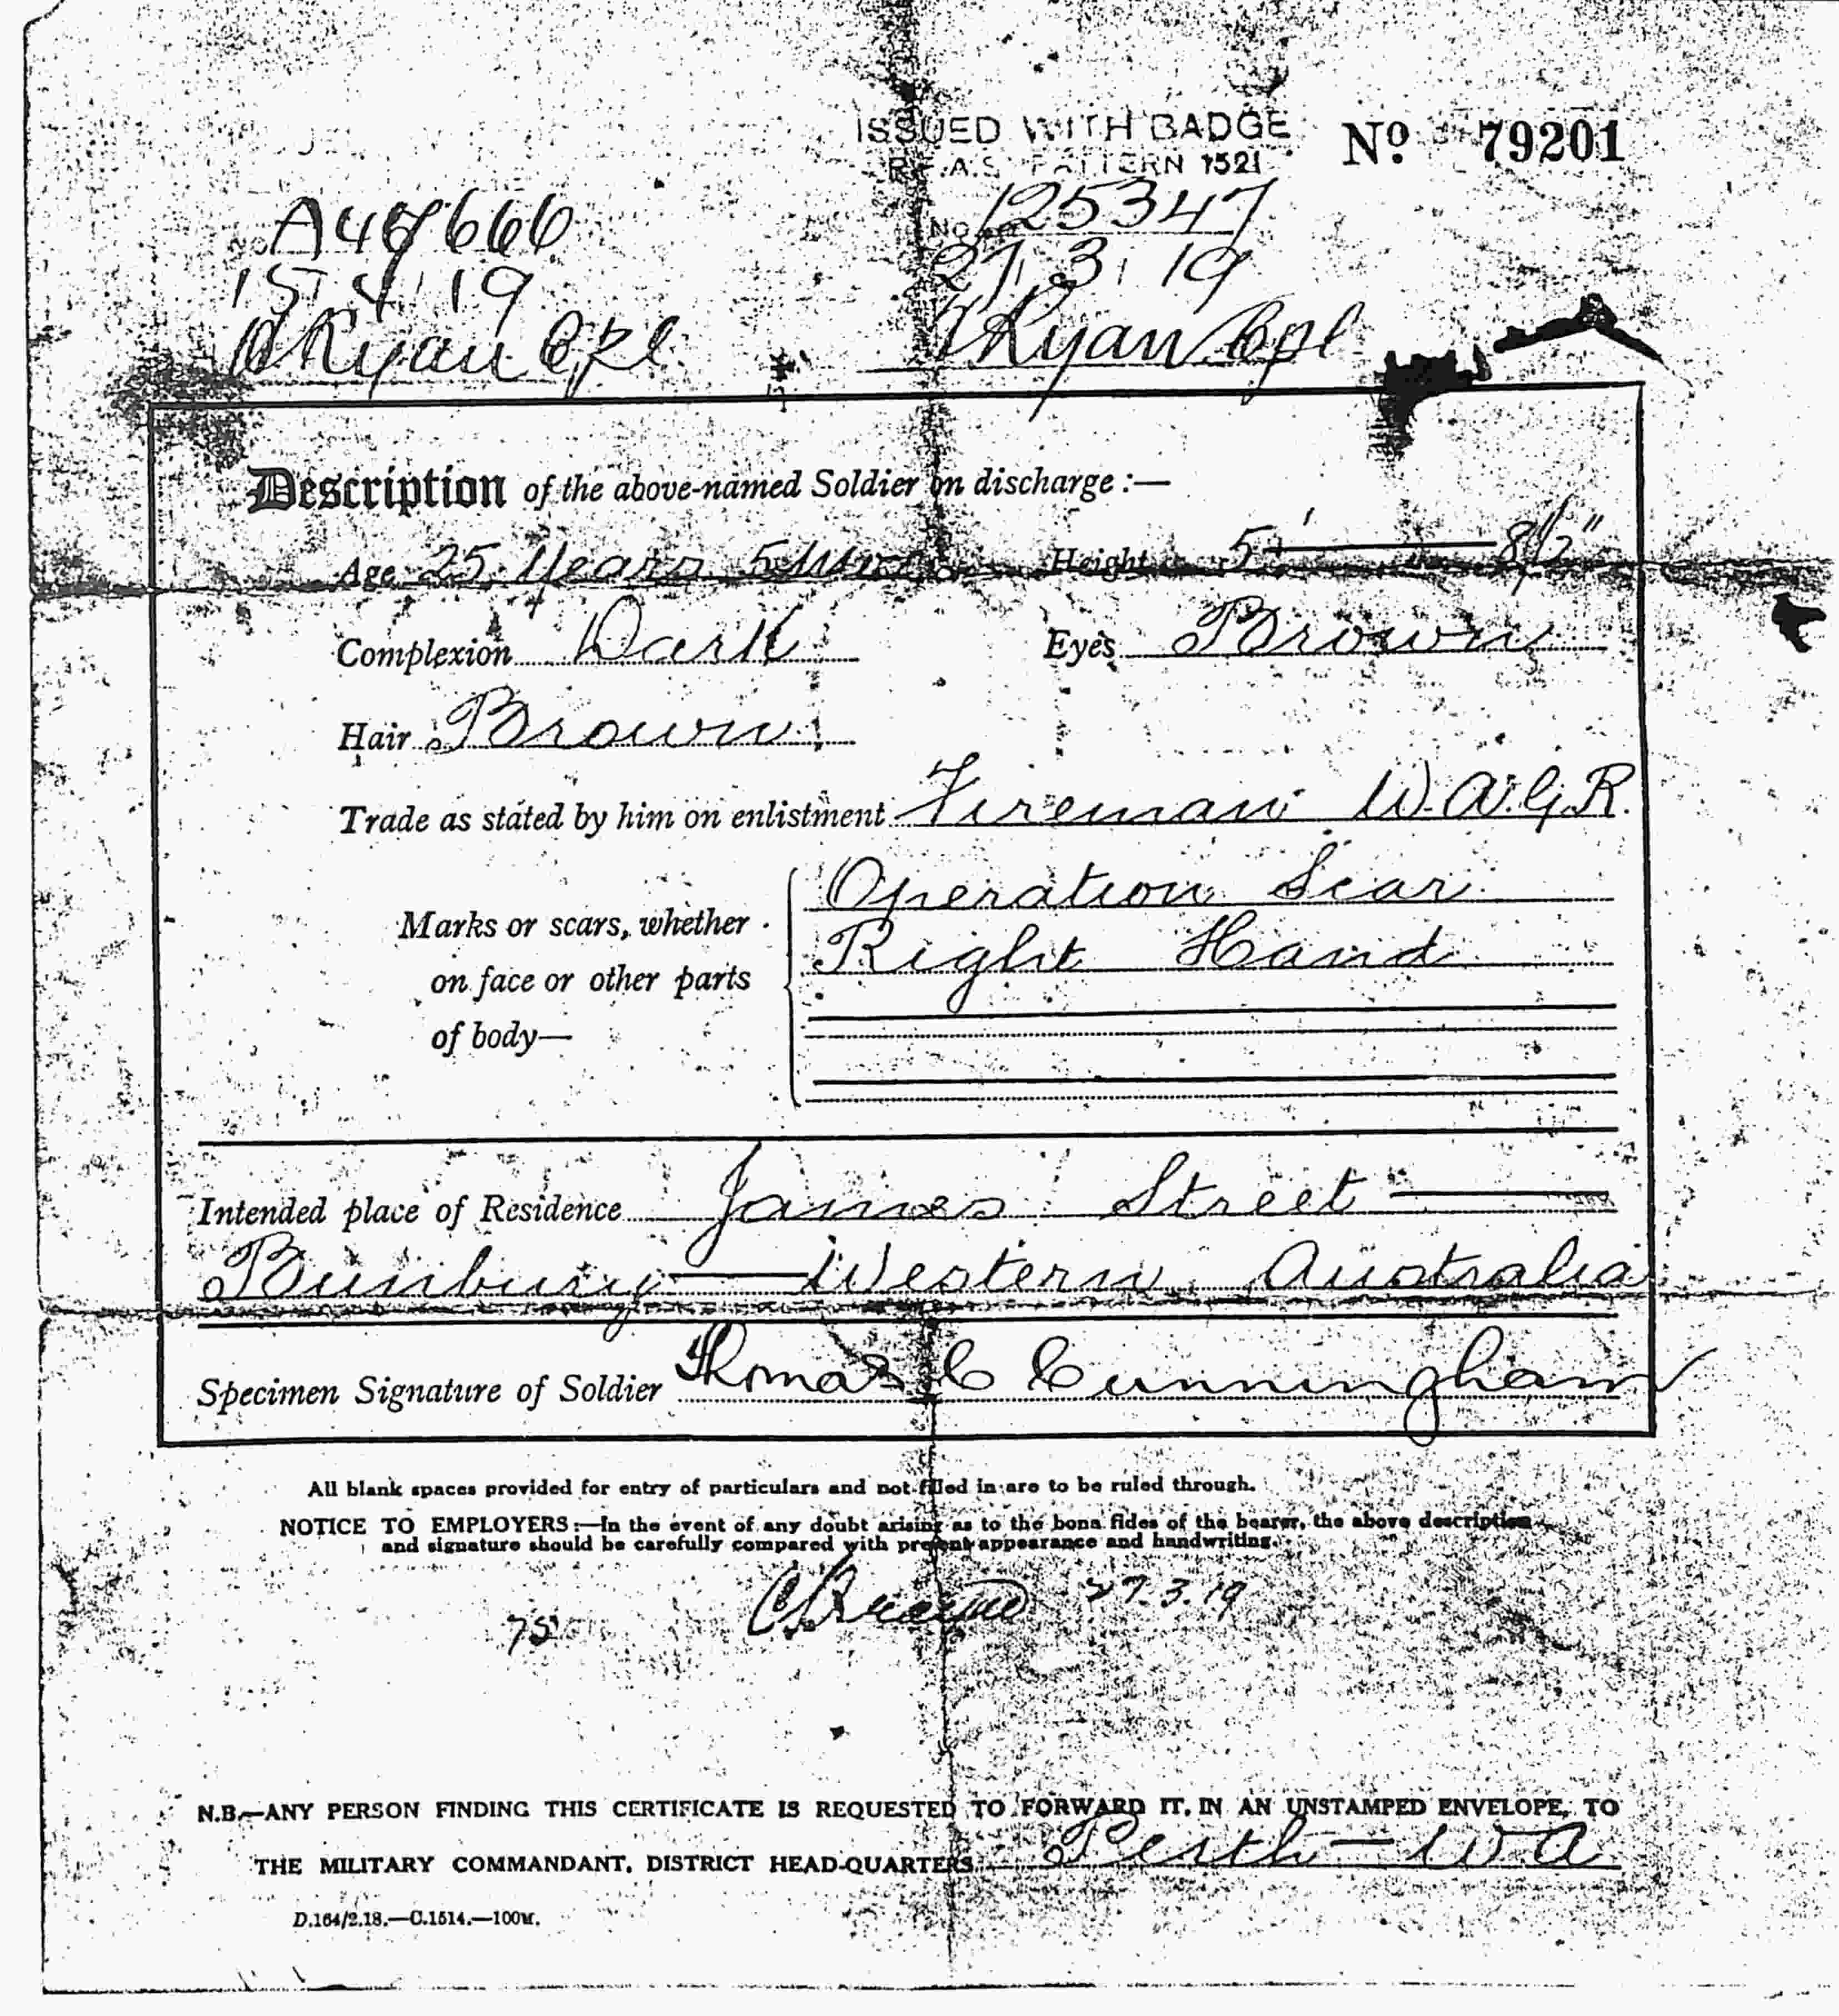 ISSUED WITH BADGE
R.F.A.S. PATTERN 1521
Nº 79201
No. 125347
27. 3. 19
Ryan Cpl
No. A 666
15 4 19
Ryan Cpl
Description of the above-named Soldier on discharge :—
Age 25 Years 5 Height 5' — 8½"
Complexion Dark Eyes Brown
Hair Brown
Trade as stated by him on enlistment Fireman W.A.G.R.
Marks or scars, whether on face or other parts of body—
Operation Scar
Right Hand
Intended place of Residence James Street —
Bunbury — Western Australia
Specimen Signature of Soldier Thomas C Cunningham
All blank spaces provided for entry of particulars and not filled in are to be ruled through.
NOTICE TO EMPLOYERS :—In the event of any doubt arising as to the bona fides of the bearer, the above description
and signature should be carefully compared with present appearance and handwriting.
27.3.19
75
N.B.—ANY PERSON FINDING THIS CERTIFICATE IS REQUESTED TO FORWARD IT, IN AN UNSTAMPED ENVELOPE, TO
THE MILITARY COMMANDANT, DISTRICT HEAD-QUARTERS Perth — W.A
D.164/2.18.—C.1514.—100M.